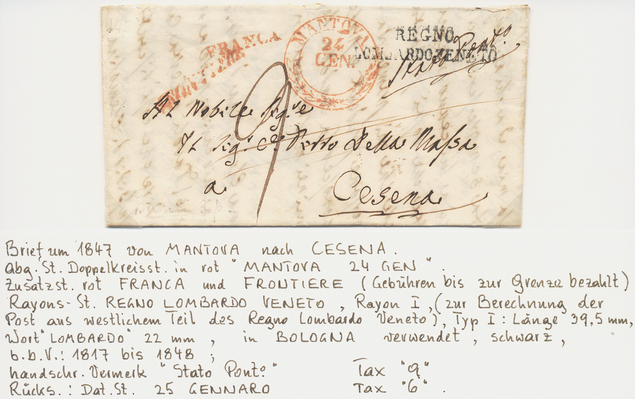 FRANCA
FRONTIERE
MANTOVA
24
GEN.
REGNO
LOMBARDO VENETO
Stato Ponto.
9
Al Nobile Sig.e
Il Sig.e Ce. Della Massa
a
Cesena
Brief um 1847 von MANTOVA nach CESENA.
Abg. St. Doppelkreisst. in rot "MANTOVA 24 GEN".
Zusatzst. rot FRANCA und FRONTIERE (Gebühren bis zur Grenze bezahlt)
Rayons-St. REGNO LOMBARDO VENETO, Rayon I, (zur Berechnung der
Post aus westlichem Teil des Regno Lombardo Veneto), Typ I: Länge 39,5 mm,
Wort "LOMBARDO" 22 mm, in BOLOGNA verwendet, schwarz,
b.b.V.: 1817 bis 1848;
handschr. Vermerk "Stato Ponto." Tax "9"
Rücks.: Dat. St. 25 GENNARO Tax "6".